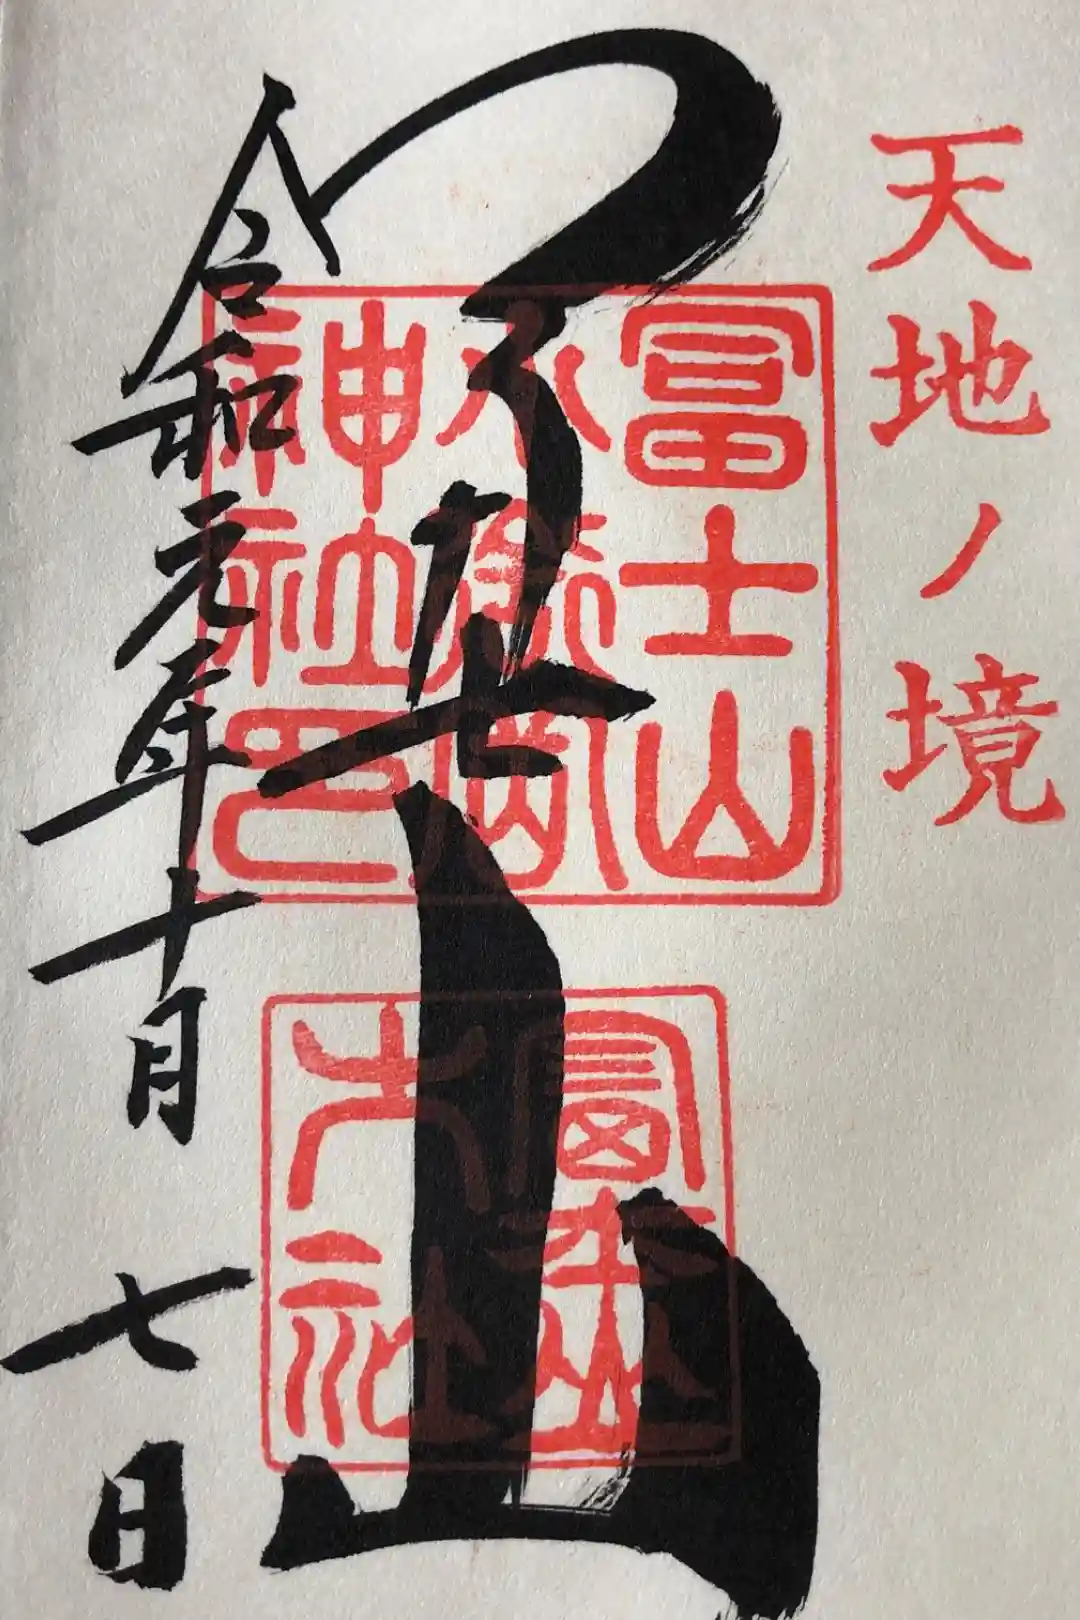 天地ノ境
冨士山
小御嶽
神社印
冨士山
令和元年十月七日